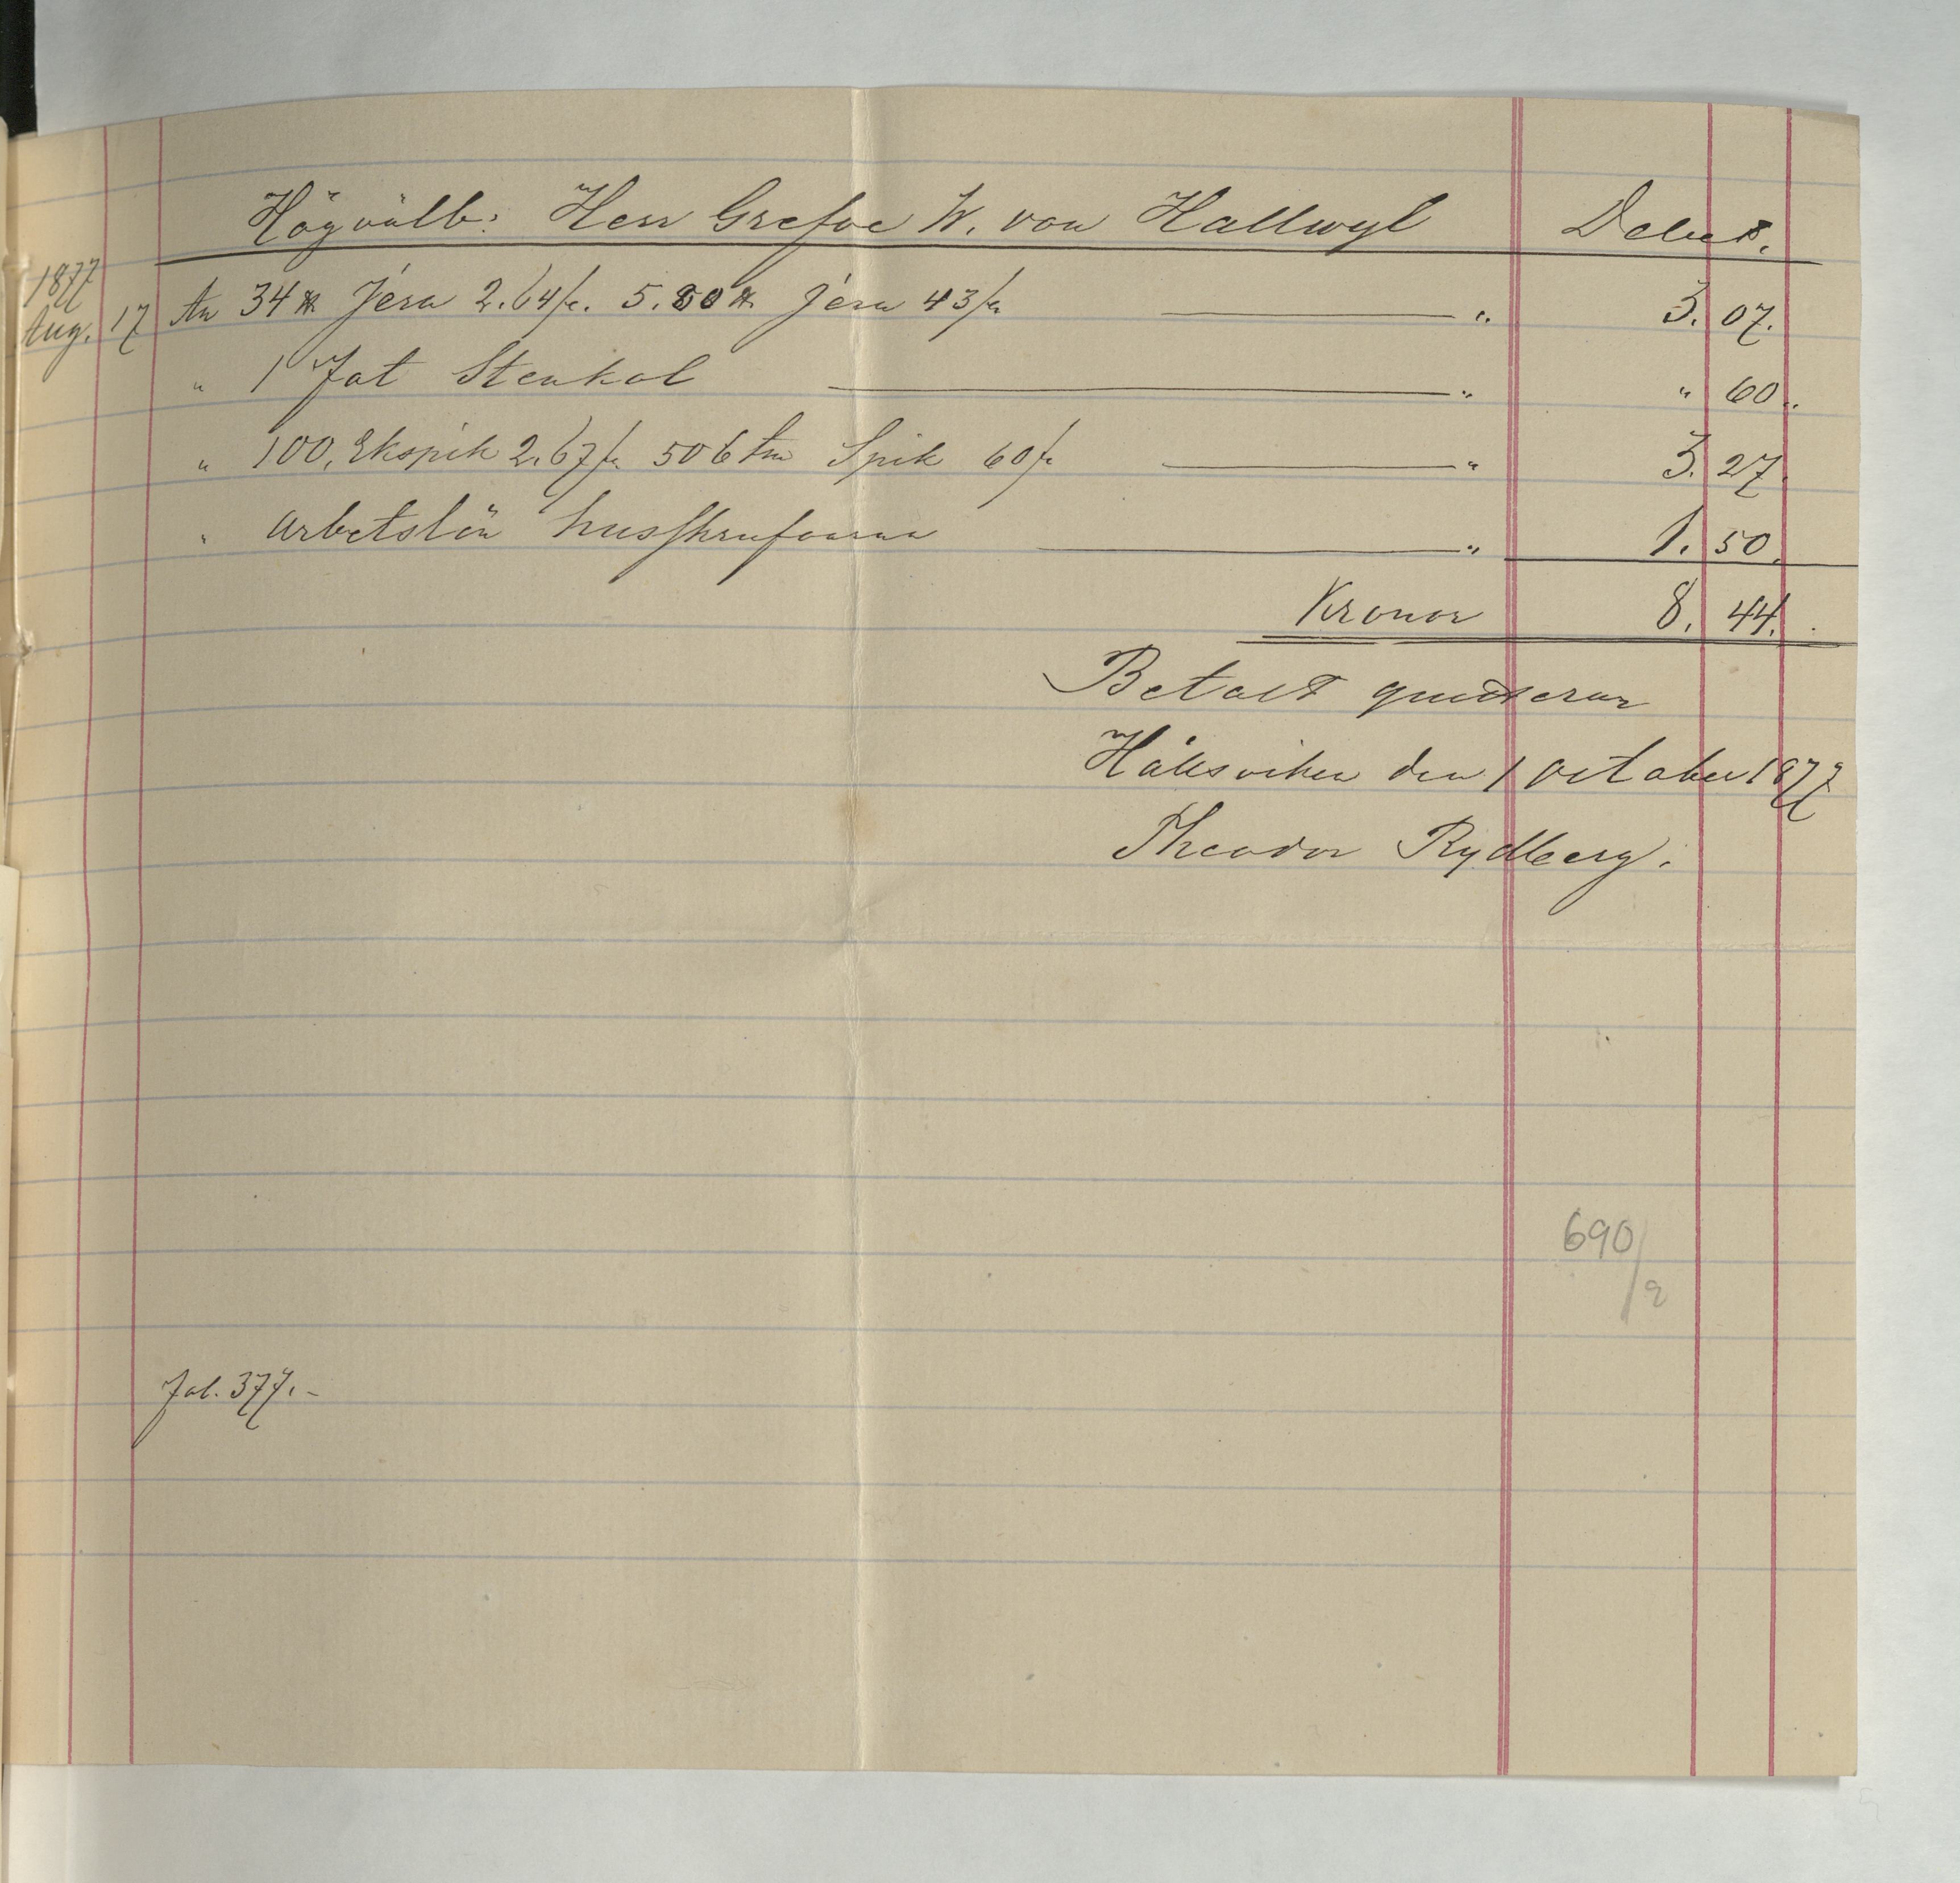 Högvälb: Herr Grefve W. von Hallwyl Debet.
1877
Aug. 17 An 34 ℔ Jern 2.64/. 5.80 ℔ Jern 43/. " 3. 07.
" 1 Fat Stenkol " " 60.
" 100. Ekspik 2.67/. 50 6 tm Spik 60/. " 3. 27.
" Arbetslön " 1. 50.
Kronor 8. 44.
Betalt qvitteras
den 1 October 1877
Theodor Rydberg.
690/2
Fol. 377.-